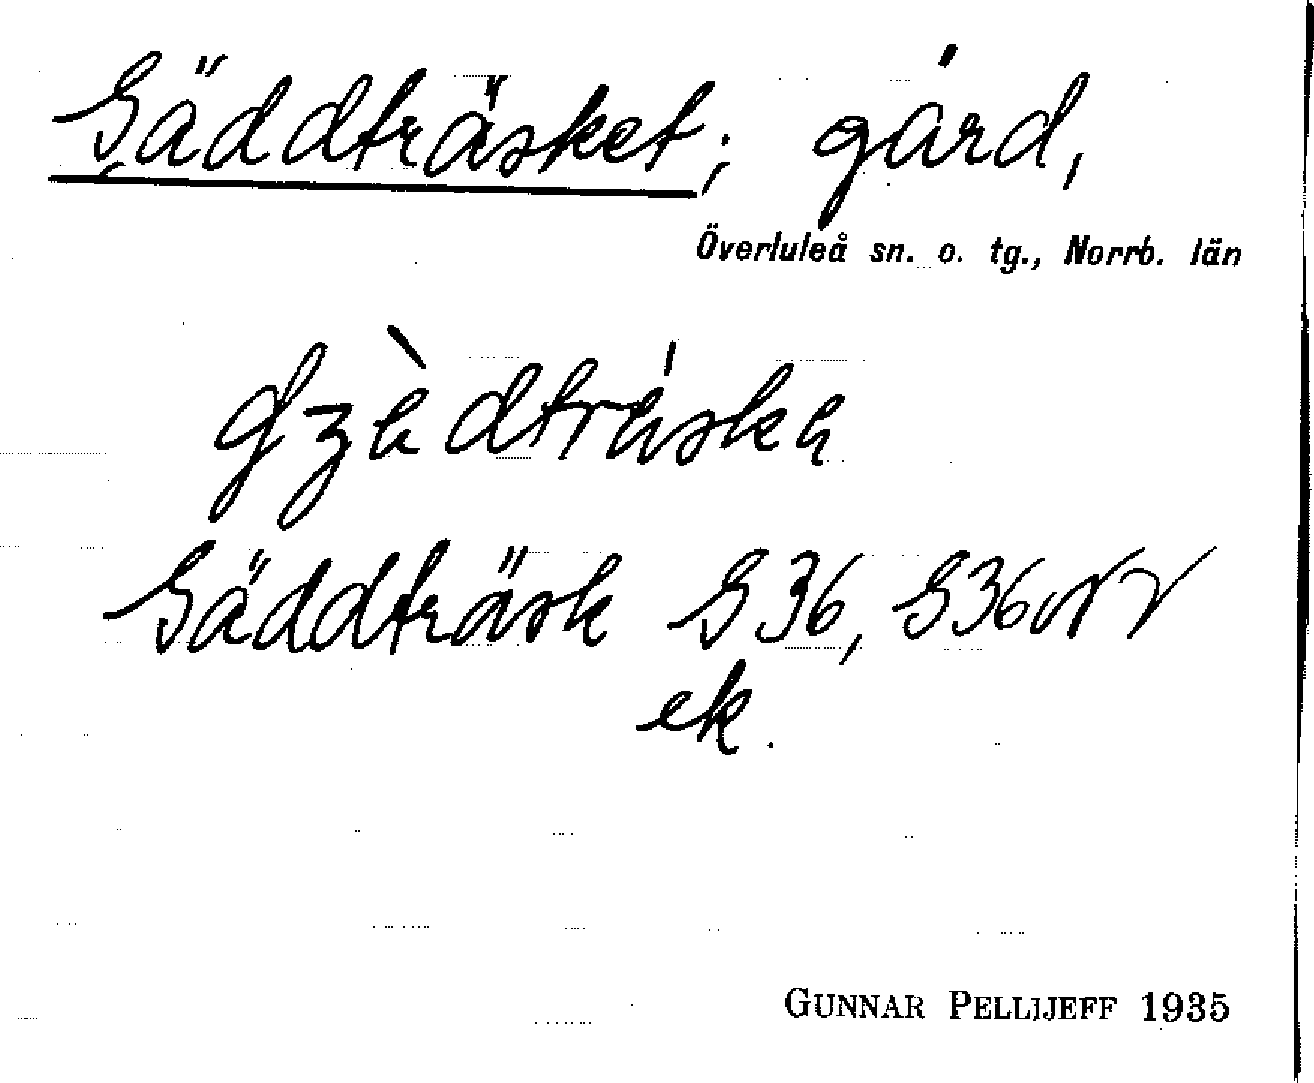 Gäddträsket; gård,
Överluleå sn. o. tg., Norrb. län
Gäddträsk G 36, G36NV
ek.
GUNNAR PELLIJEFF 1935